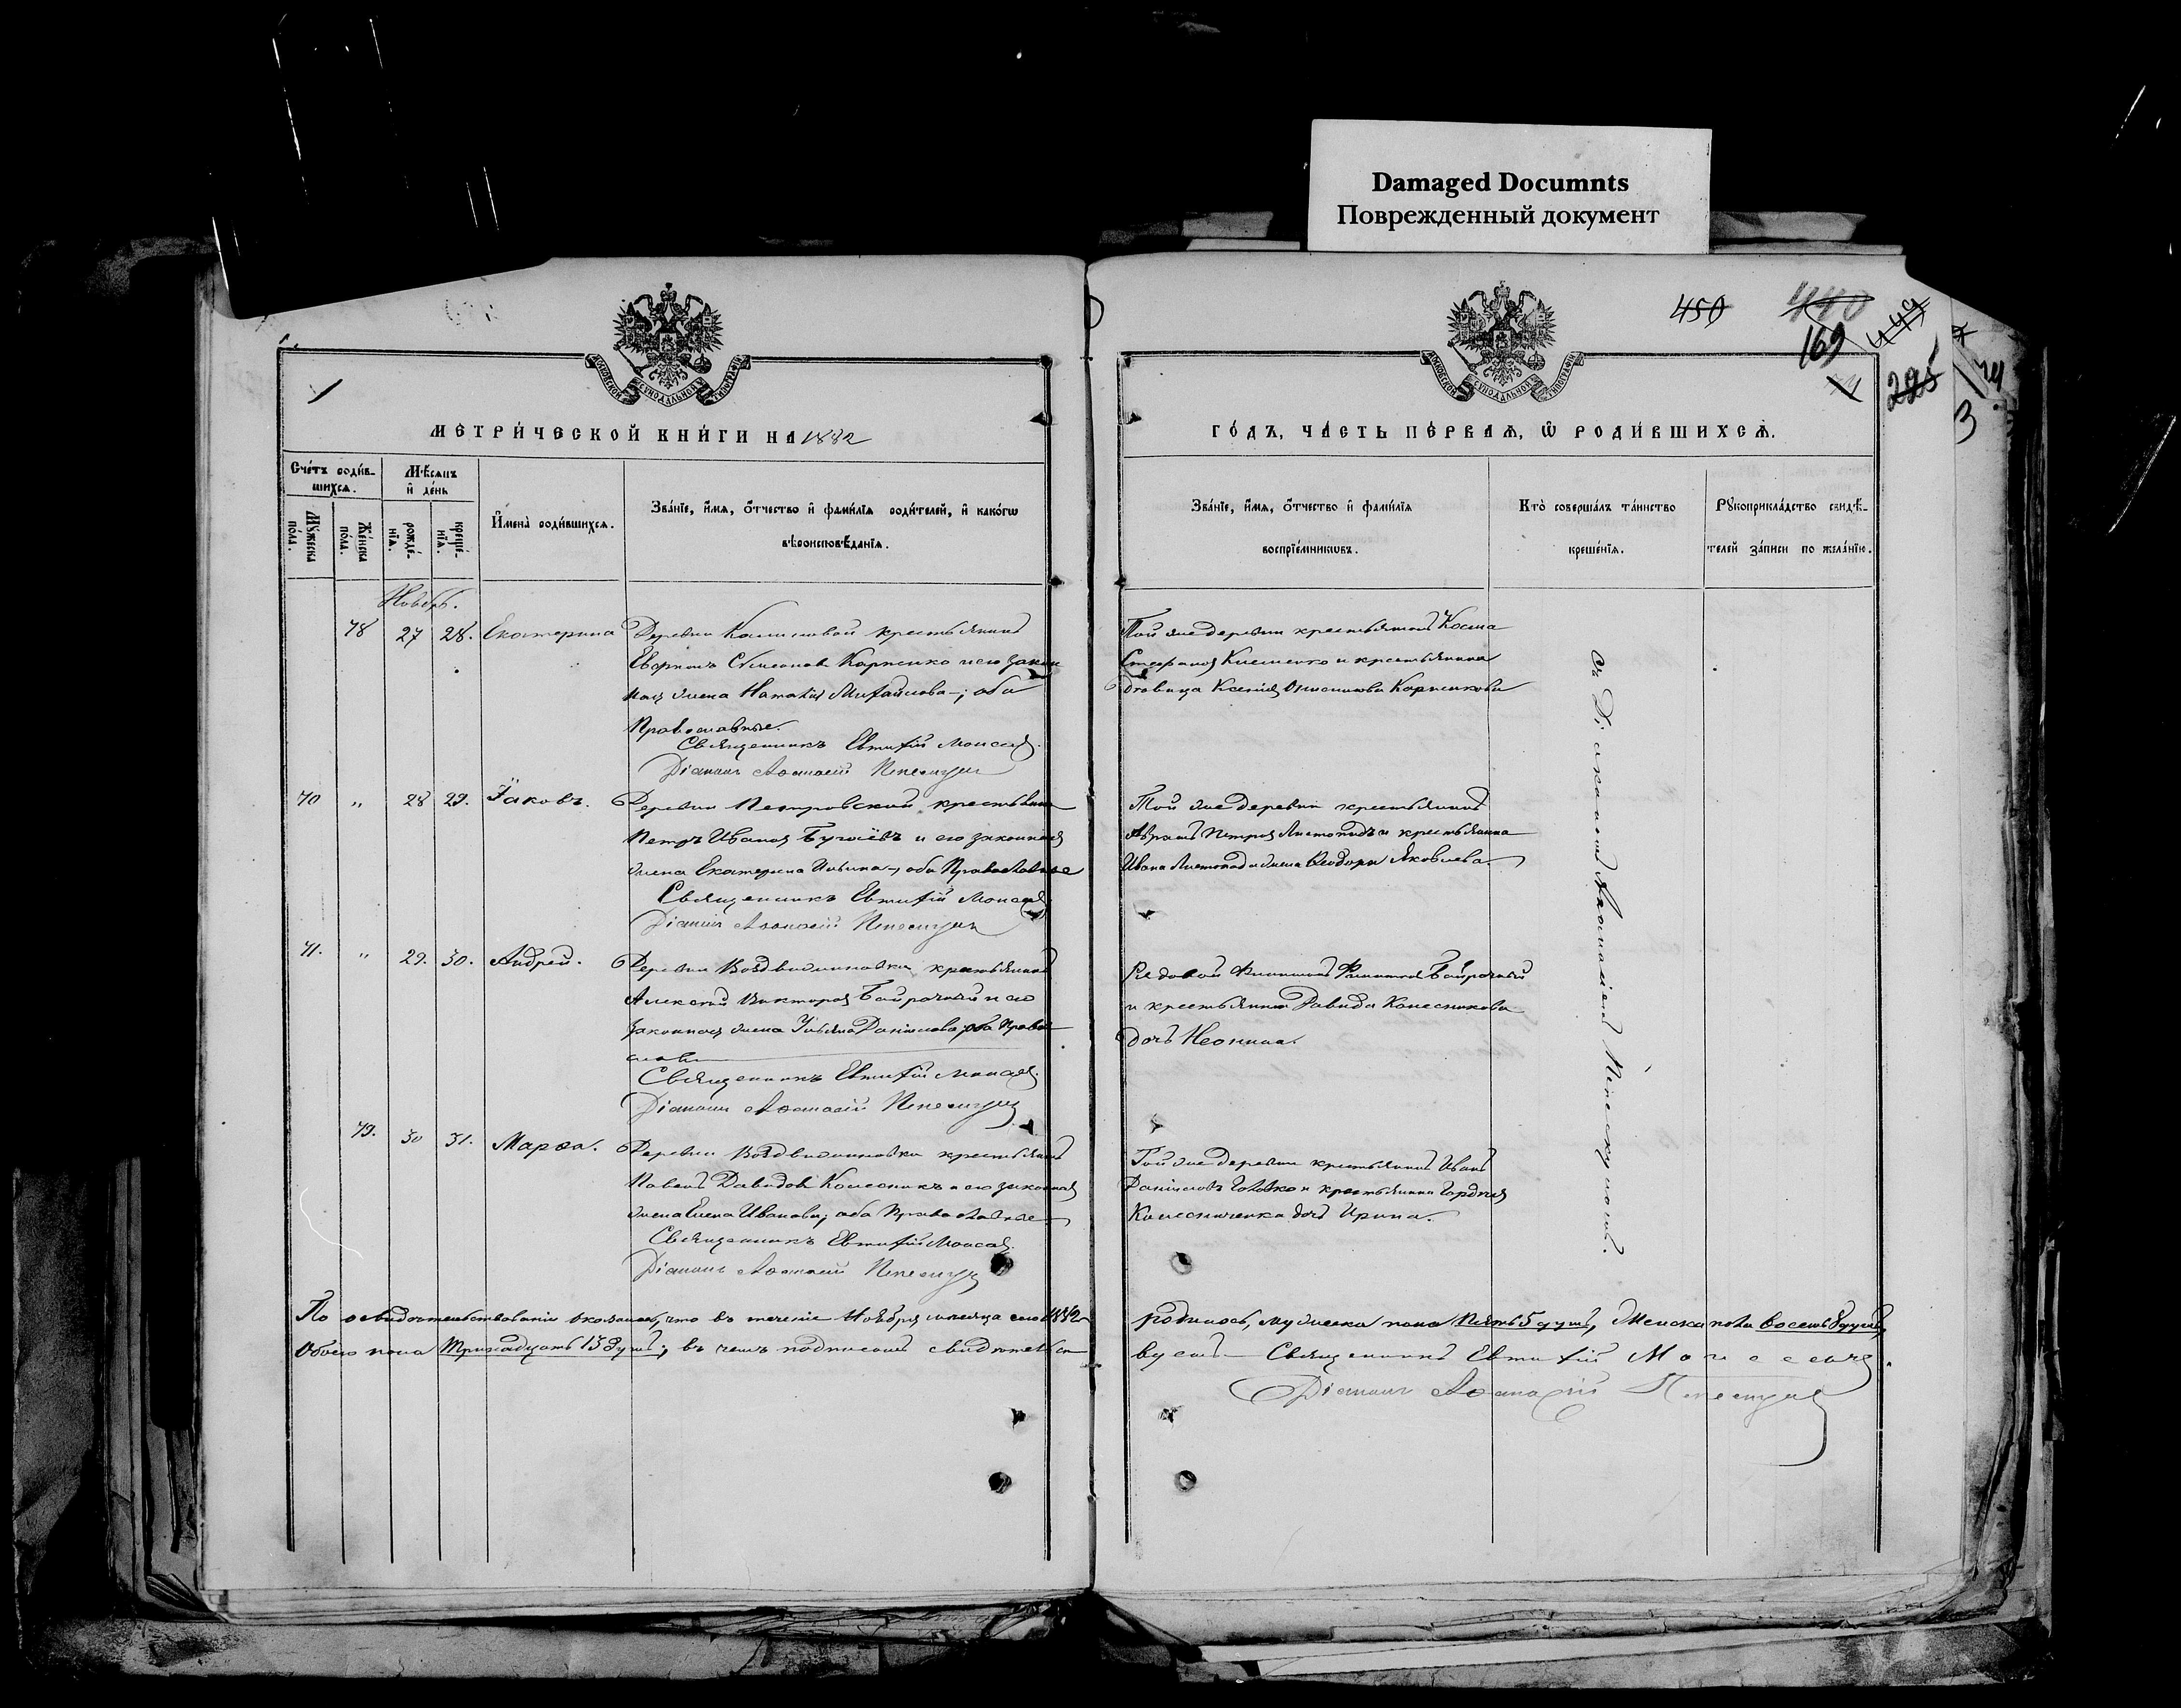 Damaged Documnts
Поврежденный документ
450
440
169
449
225
МЕТРИ́ЧЕСКОЙ КНИ́ГИ НА 1882
ГО́ДЪ, ЧА́СТЬ ПЕ́РВАѦ, Ѡ РОДИ́ВШИХСѦ.
Сче́тъ роди́в-
шихсѧ.
Мѣ́сѧцъ
и҆ де́нь
Мꙋ́жеска
по́ла.
Же́нска
по́ла.
рожде́-
нїѧ.
креще́-
нїѧ.
И҆мена̀ роди́вшихсѧ.
Зва́нїе, и҆́мѧ, ѻ҆́тчество и҆ фами́лїѧ роди́телей, и҆ како́гѡ
вѣроисповѣ́данїѧ.
Зва́нїе, и҆́мѧ, ѻ҆́тчество и҆ фами́лїѧ
воспрїе́мникѡвъ.
Кто̀ соверша́лъ та́инство
креще́нїѧ.
Рꙋкоприкла́дство свидѣ́-
телей за́писи по жела́нїю.
Ноябрь.
78 27 28. Екатерина
Деревни Калиновой крестьянинъ
Симеоновъ Карпенко и его закон
ная жена Наталія Михайлова; оба
Православные.
Священникъ Евтихій
Діаконъ Аѳанасій
Той же деревни крестьянинъ Косма
Стефановъ и крестьянка
вдовица Ксенія Карпенкова
70 " 28 29. Іаковъ.
Деревни Петровской крестьянинъ
Петръ Ивановъ Бугаёвъ и его законная
жена Екатерина Ильина, оба Православные
Священникъ Евтихій
Діаконъ Аѳанасій
Той же деревни крестьянинъ
Авраамъ Петровъ Листопадъ и крестьянина
Ивана Листопада жена Ѳеодора Яковлева.
71. " 29. 30. Андрей.
Деревни Воздвиженовки крестьянинъ
Алексѣй Викторовъ Байрачный и его
законная жена Даніилова, оба Право
слав
Священникъ Евтихій
Діаконъ Аѳанасій
Рядовой Филиппъ Байрачный
и крестьянина Давида Колесникова
дочь Неонила.
79. 30 31. Марѳа.
Деревни Воздвиженовки крестьянинъ
Павелъ Давидовъ Колесникъ и его законная
жена Елена Иванова, оба Православные
Священникъ Евтихій
Діаконъ Аѳанасій
Той же деревни крестьянинъ Иванъ
Даніиловъ Головко и крестьянина Гордія
Колесниченка дочь Ирина.
съ Діакономъ Аѳанасіемъ
По освидѣтельствованіи оказалось, что въ теченіе Ноября мѣсяца сего 1882
родилось, мужеска пола Пять 5 душъ, Женска пола восемь 8 душъ,
Обоего пола Тринадцать 13 душъ; въ чемъ подписомъ свидѣтельст
вуемъ Священникъ Евтихій
Діаконъ Аѳанасій